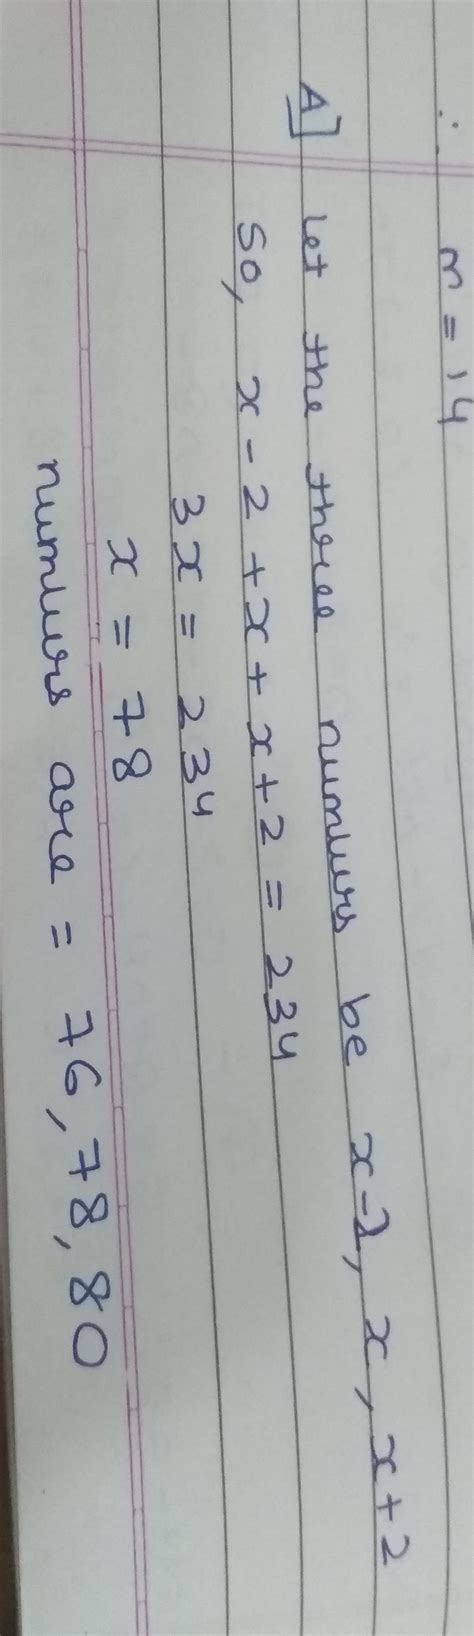 ∴ m = 14
A] Let the three numbers be x-2, x, x+2
So, x-2+x+x+2 = 234
3x = 234
x = 78
numbers are = 76, 78, 80